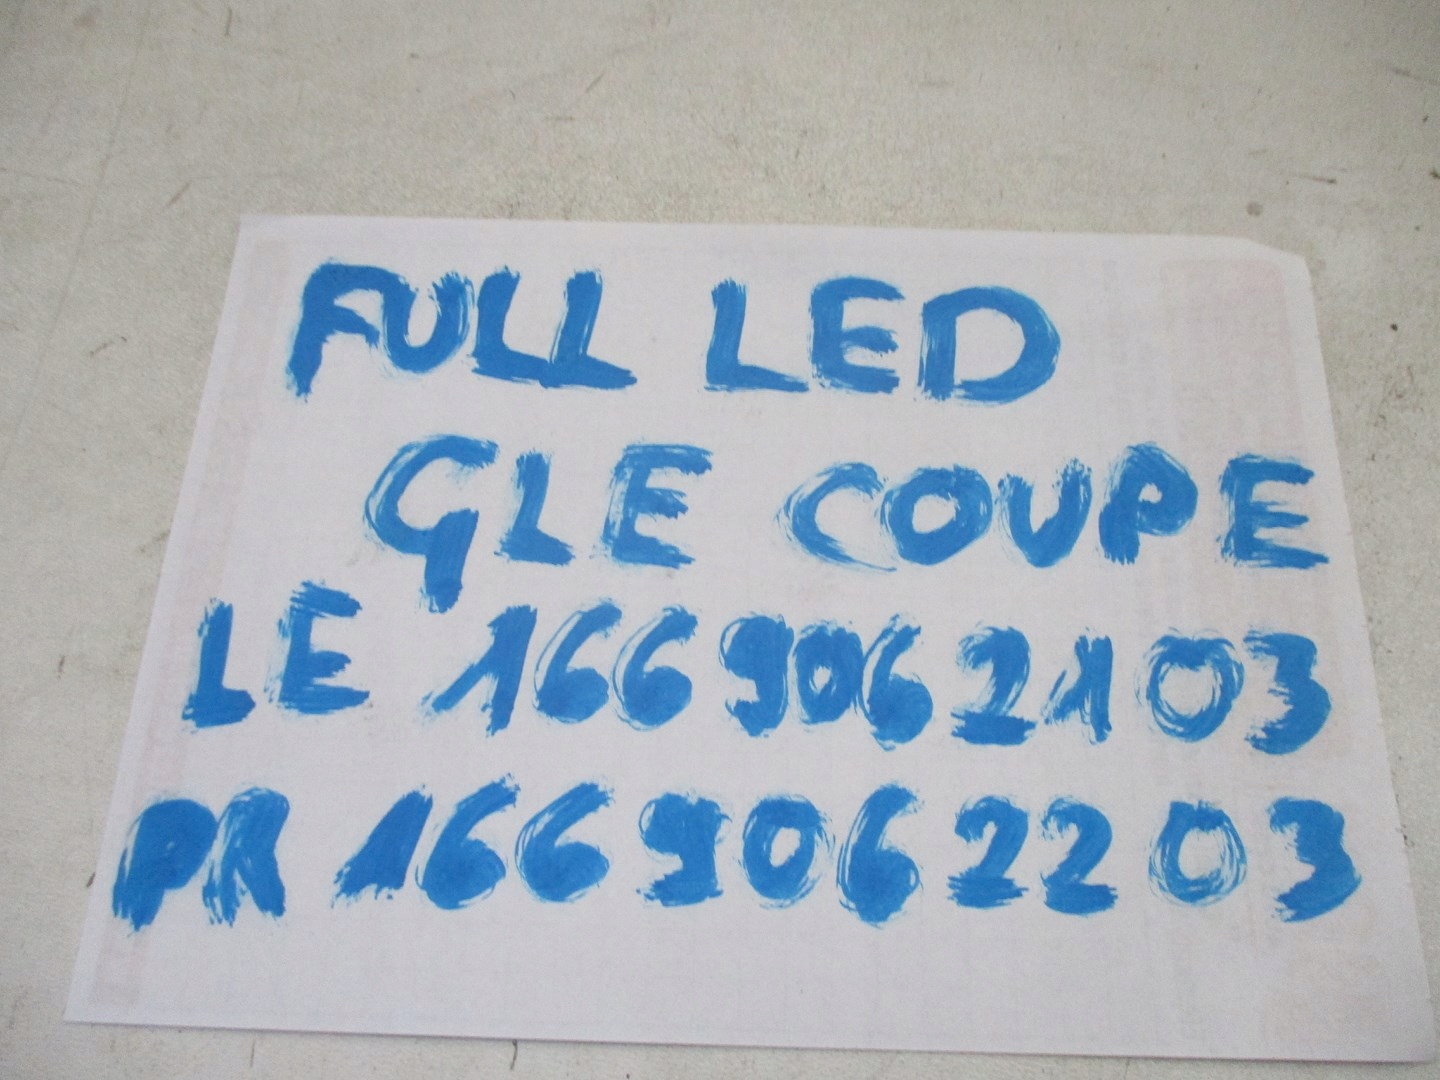 FULL LED
GLE COUPE
LE 166 906 21 03
PR 166 906 22 03